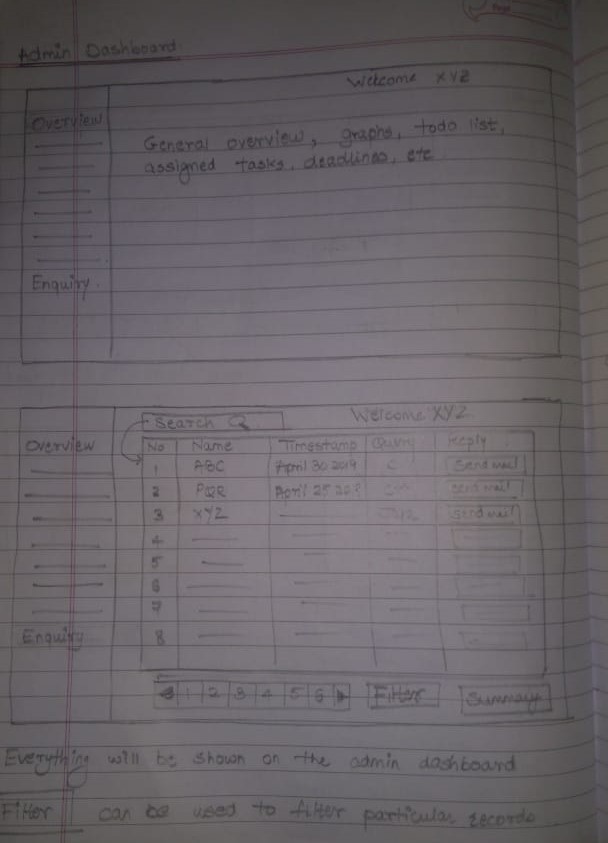 Page
Admin Dashboard.
Welcome XYZ
Overview
General overview, graphs, todo list,
assigned tasks, deadlines, etc
Enquiry.
Search
Welcome XYZ
Overview
No Name Timestamp Query Reply
1 ABC April 30 2019 Send mail
2 PQR April 25 Send mail
3 XYZ Send mail
4
5
6
7
Enquiry
8
1 2 3 4 5 6 Filter Summary
Everything will be shown on the admin dashboard
Filter can be used to filter particular records